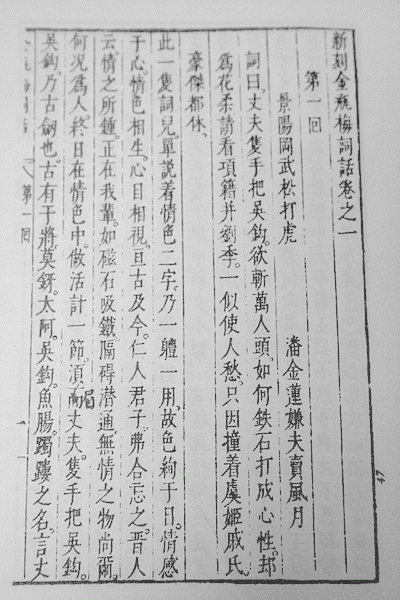 新刻金瓶梅詞話卷之一
第一回
景陽岡武松打虎　潘金蓮嫌夫賣風月
詞曰。丈夫隻手把吳鈎。欲斬萬人頭。如何鉄石打成心性。却
爲花柔請看項籍并劉季。一似使人愁。只因撞着虞姬戚氏。
豪傑都休。
此一隻詞兒單說着情色二字。乃一體一用。故色絢于目。情感
于心。情色相生。心目相視。亘古及今。仁人君子。弗合忘之。晋人
云。情之所鍾。正在我輩。如磁石吸鐵。隔碍潜通。無情之物尚爾。
何况爲人。終日在情色中。做活計一節。須而丈夫隻手把吳鈎。
吳鈎。乃古劔也。古有干將。莫鋣。太阿。吳鈎。魚腸。躅䥯之名。言丈
第一回
47